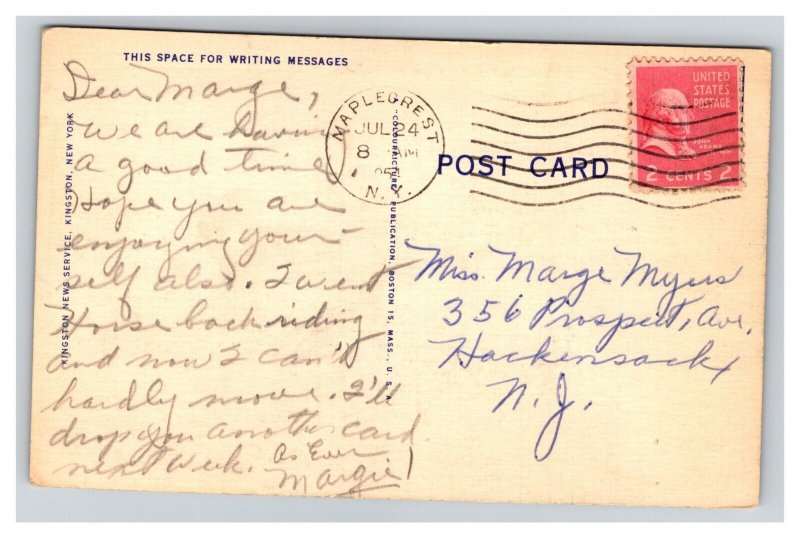 THIS SPACE FOR WRITING MESSAGES
Dear Marge,
We are havin
a good time
Hope you are
enjoying your-
self also. I went
Horse back riding
and now I can't
hardly move. I'll
drop you another card
next week. As Ever
Margie
KINGSTON NEWS SERVICE, KINGSTON, NEW YORK
"COLOURPICTURE" PUBLICATION, BOSTON 15, MASS., U. S. A.
MAPLECREST
JUL 24
8 M
N.Y.
POST CARD
UNITED
STATES
POSTAGE
JOHN ADAMS
2 CENTS 2
Miss. Marge Myers
356 Prospect, Ave.
Hackensack,
N. J.